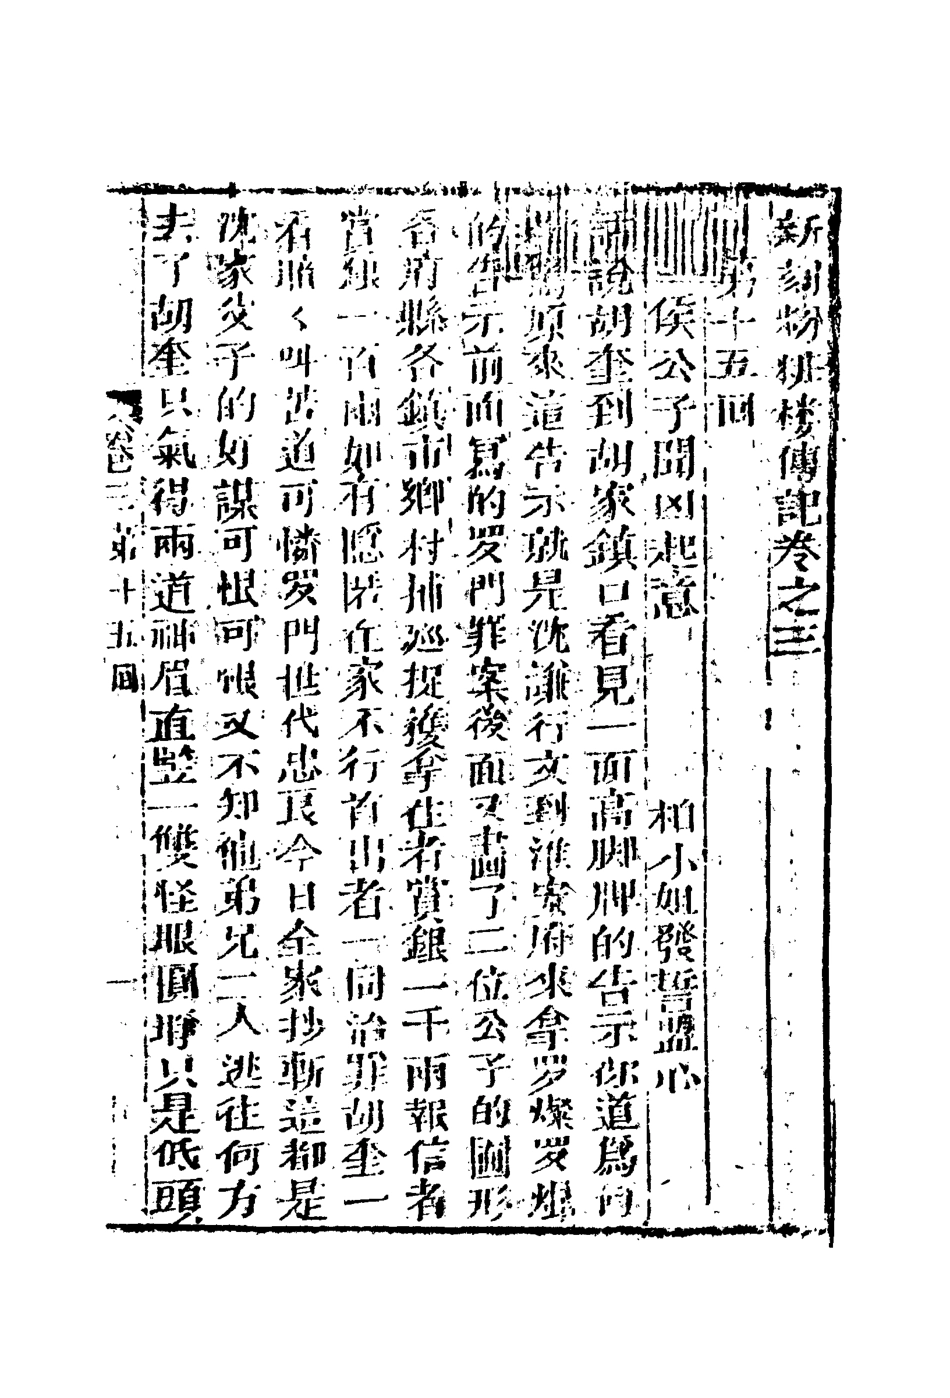 新刻粉粧楼傳記卷之三
第十五回
侯公子聞凶起意　柏小姐發誓盟心
話說胡奎到胡家鎮口看見一面高脚牌的告示你道爲何
原來這告示就是沈謙行文到淮安府來拿罗燦罗焜
的告示前面寫的罗門罪案後面又畫了二位公子的圖形
各府縣各鎮市鄉村捕廵捉獲拿住者賞銀一千兩報信者
賞銀一百兩如有隱匿在家不行首出者一同治罪胡奎一
看暗々叫苦道可憐罗門世代忠良今日全家抄斬這都是
沈家父子的奸謀可恨可恨又不知他弟兄二人逃往何方
去了胡奎只氣得兩道神眉直竪一雙怪眼圓睁只是低頭
卷三第十五回　一